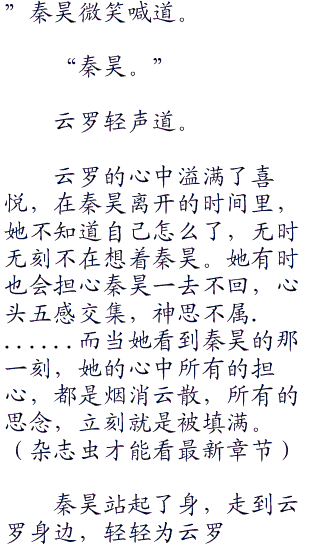 ”秦昊微笑喊道。
“秦昊。”
云罗轻声道。
云罗的心中溢满了喜
悦，在秦昊离开的时间里，
她不知道自己怎么了，无时
无刻不在想着秦昊。她有时
也会担心秦昊一去不回，心
头五感交集，神思不属.
......而当她看到秦昊的那
一刻，她的心中所有的担
心，都是烟消云散，所有的
思念，立刻就是被填满。
（杂志虫才能看最新章节）
秦昊站起了身，走到云
罗身边，轻轻为云罗